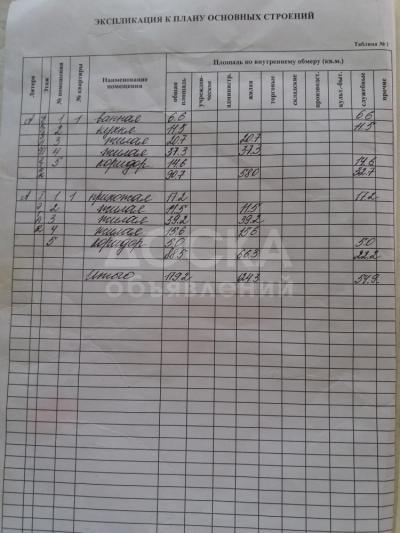 ЭКСПЛИКАЦИЯ К ПЛАНУ ОСНОВНЫХ СТРОЕНИЙ
Таблица №1
Литера Этаж № помещения № квартиры Наименование помещения Площадь по внутреннему обмеру (кв.м.)
общая площадь учрежден-ческие администр. жилая торговые складские производст. культ.-быт. служебные прочие
А 1 1 ванная 6.6 6.6
2 кухня 11.5 11.5
3 жилая 20.7 20.7
4 жилая 37.3 37.3
5 коридор 14.6 14.6
90.7 58.0 32.7
А 1 1 прихожая 17.2 17.2
2 жилая 11.5 11.5
3 жилая 39.2 39.2
4 жилая 15.6 15.6
5 коридор 5.0 5.0
88.5 66.3 22.2
Итого 179.2 124.3 54.9
ДОСКА
объявлений